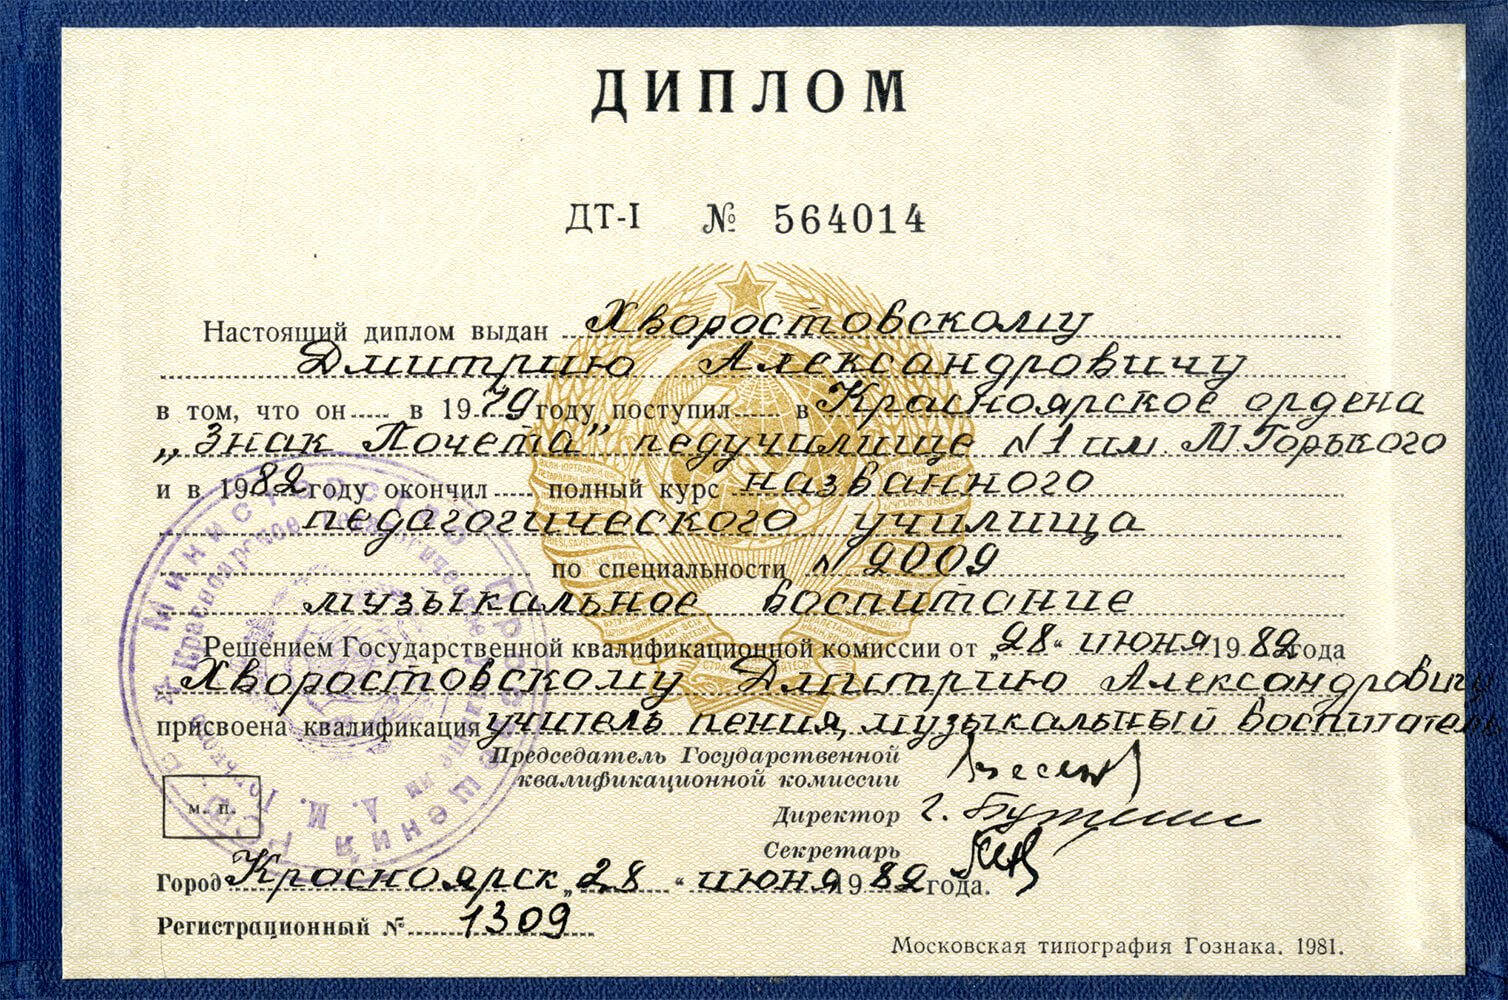 ДИПЛОМ
ДТ-I № 564014
Настоящий диплом выдан Хворостовскому
Дмитрию Александровичу
в том, что он в 1979 году поступил в Красноярское ордена
„Знак Почета" педучилище №1 им. М Горького
и в 1982 году окончил полный курс названного
педагогического училища
по специальности № 2009
музыкальное воспитание
Решением Государственной квалификационной комиссии от „28" июня 1982 года
Хворостовскому Дмитрию Александровичу
присвоена квалификация учитель пения, музыкальный воспитатель
Председатель Государственной
квалификационной комиссии
Директор
Секретарь
м. п.
Город Красноярск „28" июня 1982 года.
Регистрационный № 1309
Московская типография Гознака. 1981.